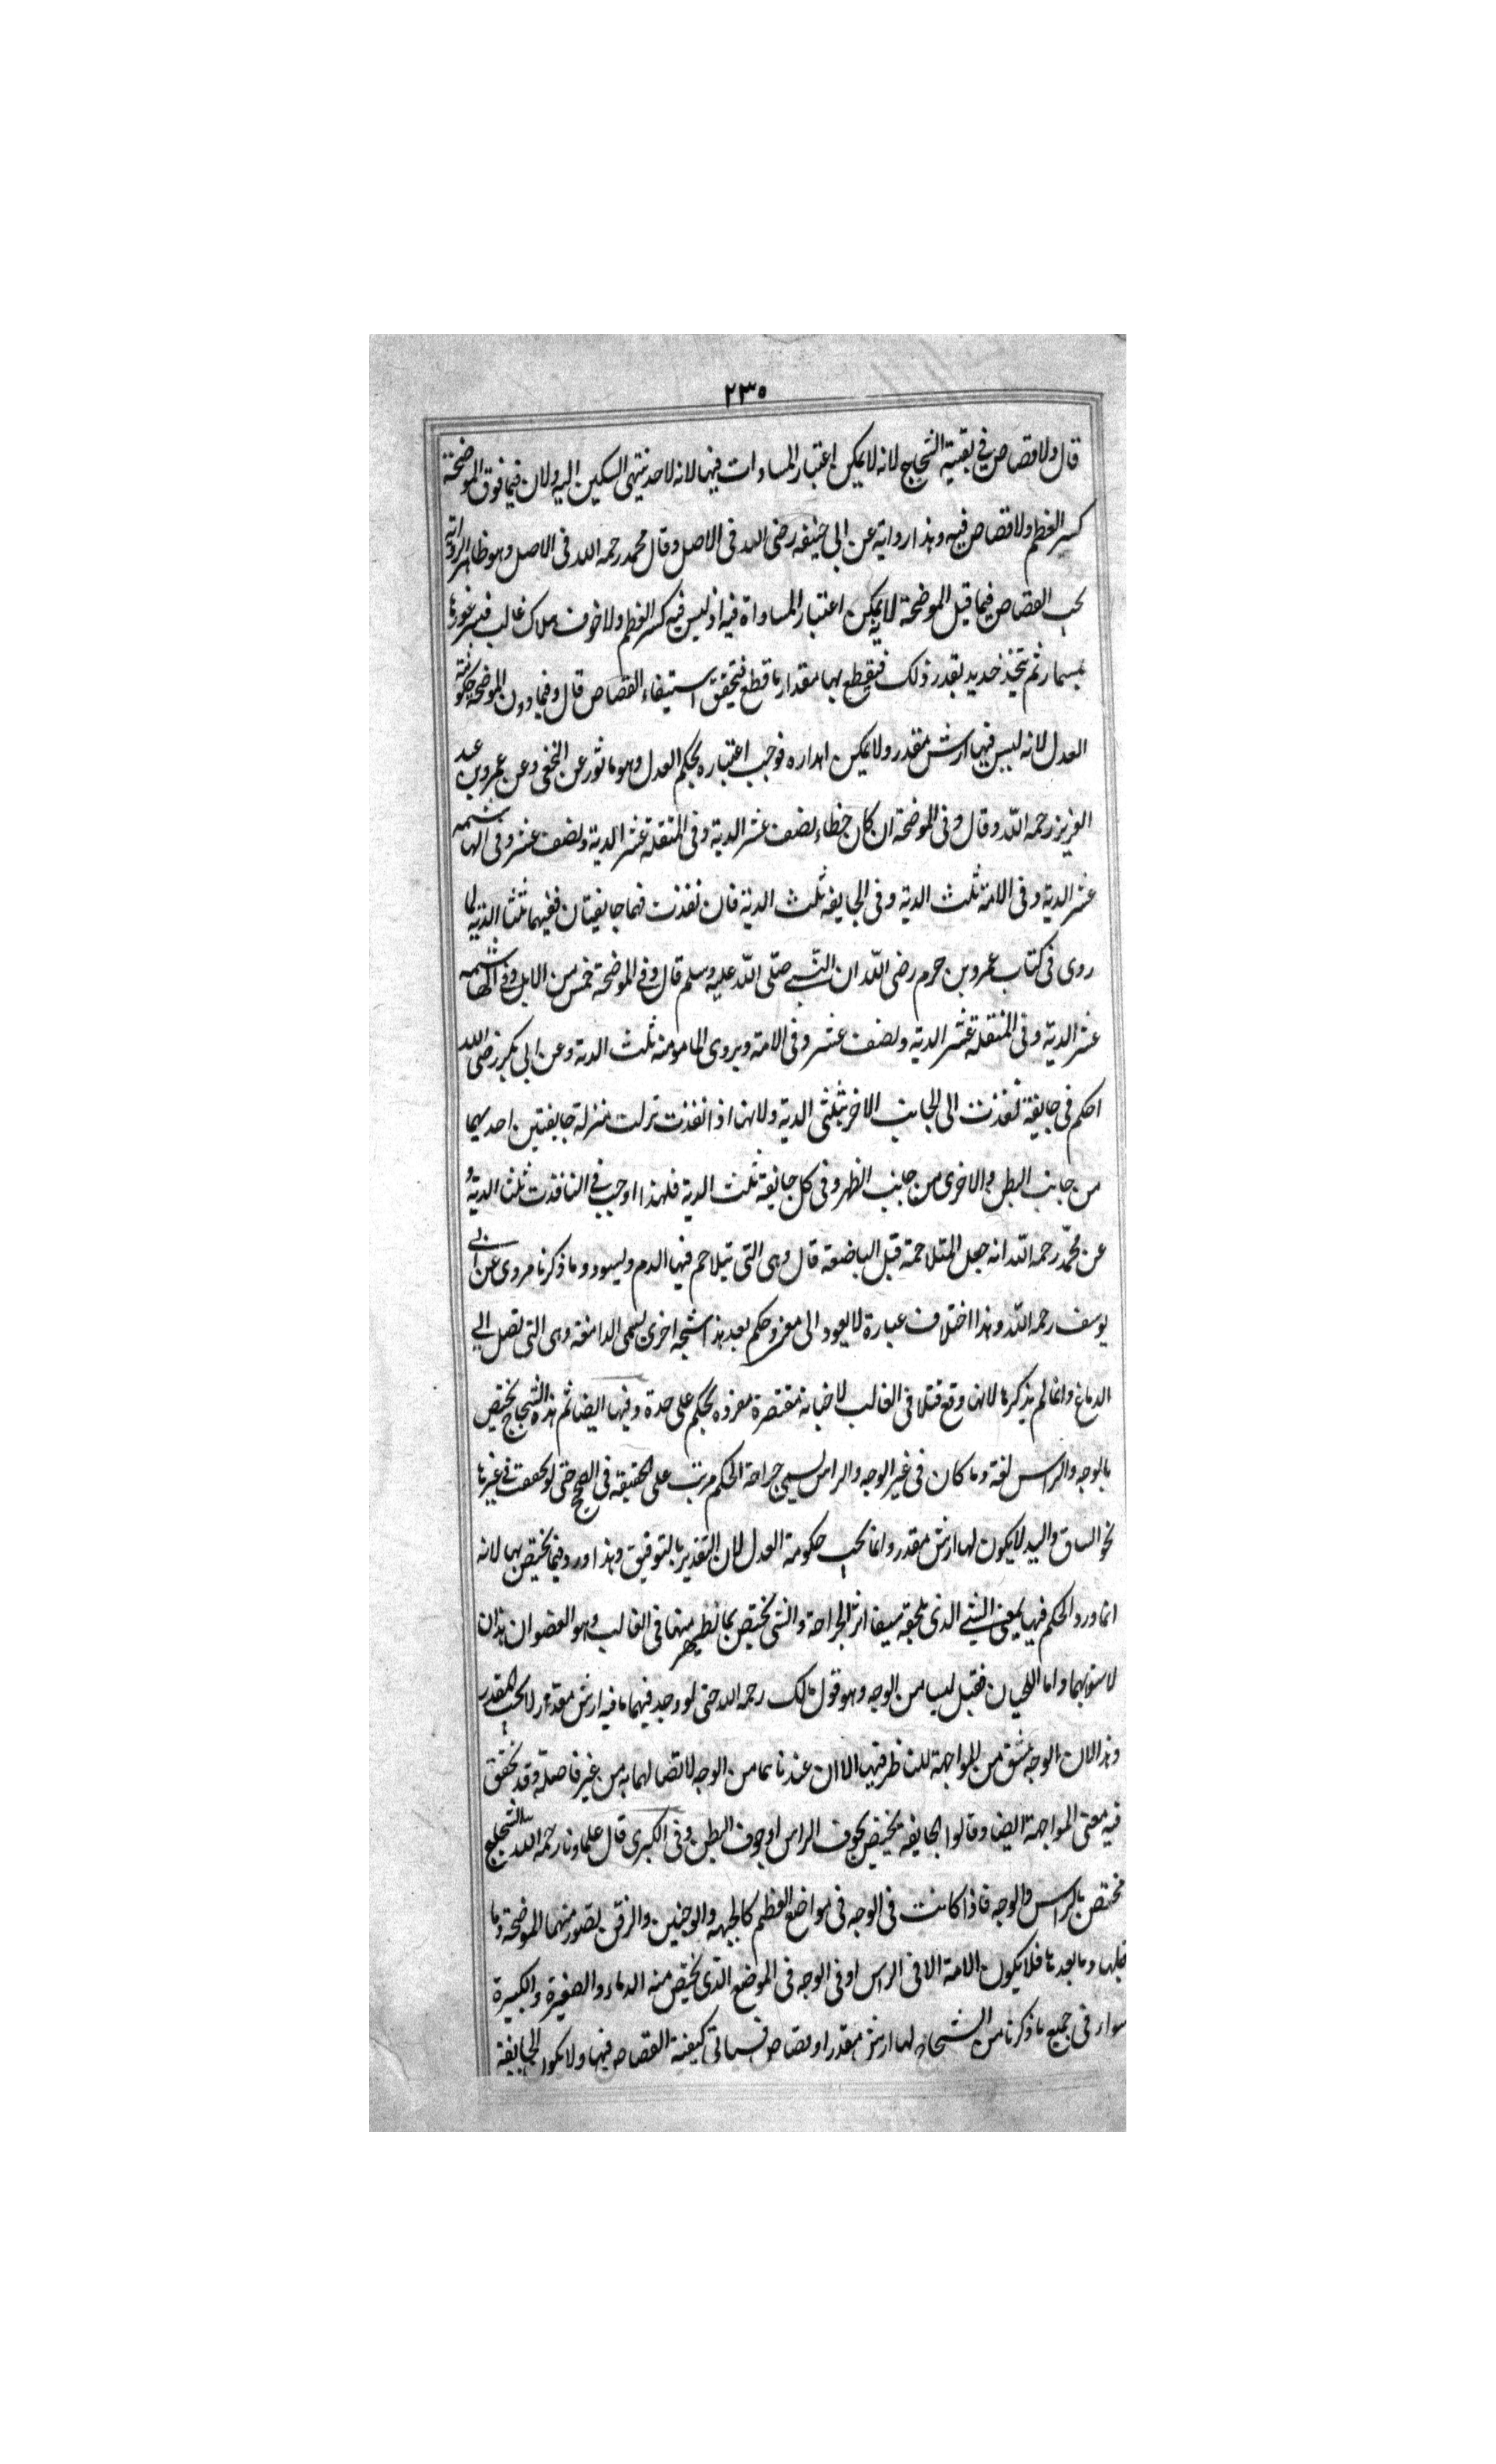 ٢٣٥
قال ولا قصاص في بقية الشجاج لانه لا يمكن اعتبار المساوات فيها لانه لا حد ينتهي السكين اليه ولان فيما فوق الموضحة
كسر العظم ولا قصاص فيه وهذا رواية عن ابي حنيفه رضى الله في الاصل وقال محمد رحمه الله في الاصل وهو ظاهر الرواية
يجب القصاص فيما قبل الموضحة لانه يمكن اعتبار المساواة فيه اذ ليس فيه كسر العظم ولا خوف هلاك غالب فيسبر غورها
بمسبار ثم يتخذ حديد بقدر ذلك فيقطع بها مقدار ما قطع فيتحقق استيفاء القصاص قال وفيما دون الموضحة حكومة
العدل لانه ليس فيها ارش مقدر ولا يمكن اهداره فوجب اعتباره بحكم العدل وهو ماثور عن النخعي وعن عمر وبن عبد
العزيز رحمه الله وقال وفي الموضحة ان كان خطاء نصف عشر الدية وفي المنقلة عشر الدية ونصف عشر وفي الهاشمه
عشر الدية وفي الامة ثلث الدية وفي الجايفه ثلث الدية فان نفذت فهما جايفتان ففيهما ثلثا الدية لما
روى في كتاب عمرو بن حزم رضى الله ان النبي صلى الله عليه وسلم قال وفي الموضحة خمس من الابل وفي الهاشمه
عشر الدية وفي المنقلة عشر الدية ونصف عشر وفي الامة ويروى المامومة ثلث الدية وعن ابي بكر رضى الله
احكم في جايفة نفذت الى الجانب الاخر بثلثى الدية ولانها اذا نفذت نزلت منزلة جايفتين احديهما
من جانب البطن والاخرى من جانب الظهر وفي كل جايفة ثلث الدية فلهذا اوجب في النافذت ثلثا الدية و
عن محمد رحمه الله انه جعل المتلاحمة قبل الباضعة قال وهي التي يتلاحم فيها الدم ويسود وما ذكرنا مروى عن ابي
يوسف رحمه الله وهذا اختلاف عبارة لا يعود الى معنى وحكم بعد هذا شجه اخرى تسمى الدامغة وهي التي تصل الى
الدماغ وانما لم يذكرها لانها وقع قتلا في الغالب لا جناية مقتصرة مفرده بحكم على حدة وفيها ايضا ثم هذه الشجاج يختص
بالوجه والراس لغة وما كان في غير الوجه والراس يسمى جراحة الحكم مرتب على الحقيقه في الصحيح حتى لو تحققت في غيرها
نحو الساق واليد لا يكون لها ارش مقدر وانما يجب حكومة العدل لان التقدير بالتوقيف وهذا ورد فيما يختص بها لانه
انما ورد الحكم فيها لمعنى الشين الذى يلحقه ببقا اثر الجراحة والشين يختص بما يظهر منهما في الغالب وهو العضوان هذان
لا سواهما واما اللحيان فقيل ليسا من الوجه وهو قول مالك رحمه الله حتى لو وجد فيهما ما فيه ارش مقدر لا يجب المقدر
وهذا لان الوجه مشتق من المواجهة للناظر فيهما الا ان عندنا هما من الوجه لاتصالهما به من غير فاصلة وقد تحقق
فيه معنى المواجهة ايضا وقالوا الجايفه يختص بجوف الراس او جوف البطن وفي الكبرى قال علماونا رحمه الله الشجاج
مختص بالراس والوجه فاذا كانت في الوجه في مواضع العظم كالجبهه والوجنين والذقن يتصور منهما الموضحة وما
قبلها وما بعدها فلا يكون الامة الا في الراس او في الوجه في الموضع الذى يختص منه الدماء والصغيرة والكبيرة
سواء في جميع ما ذكرنا من الشجاج لها ارش مقدر او قصاص فسياتى كيفية القصاص فيها ولا يكون الجايفة